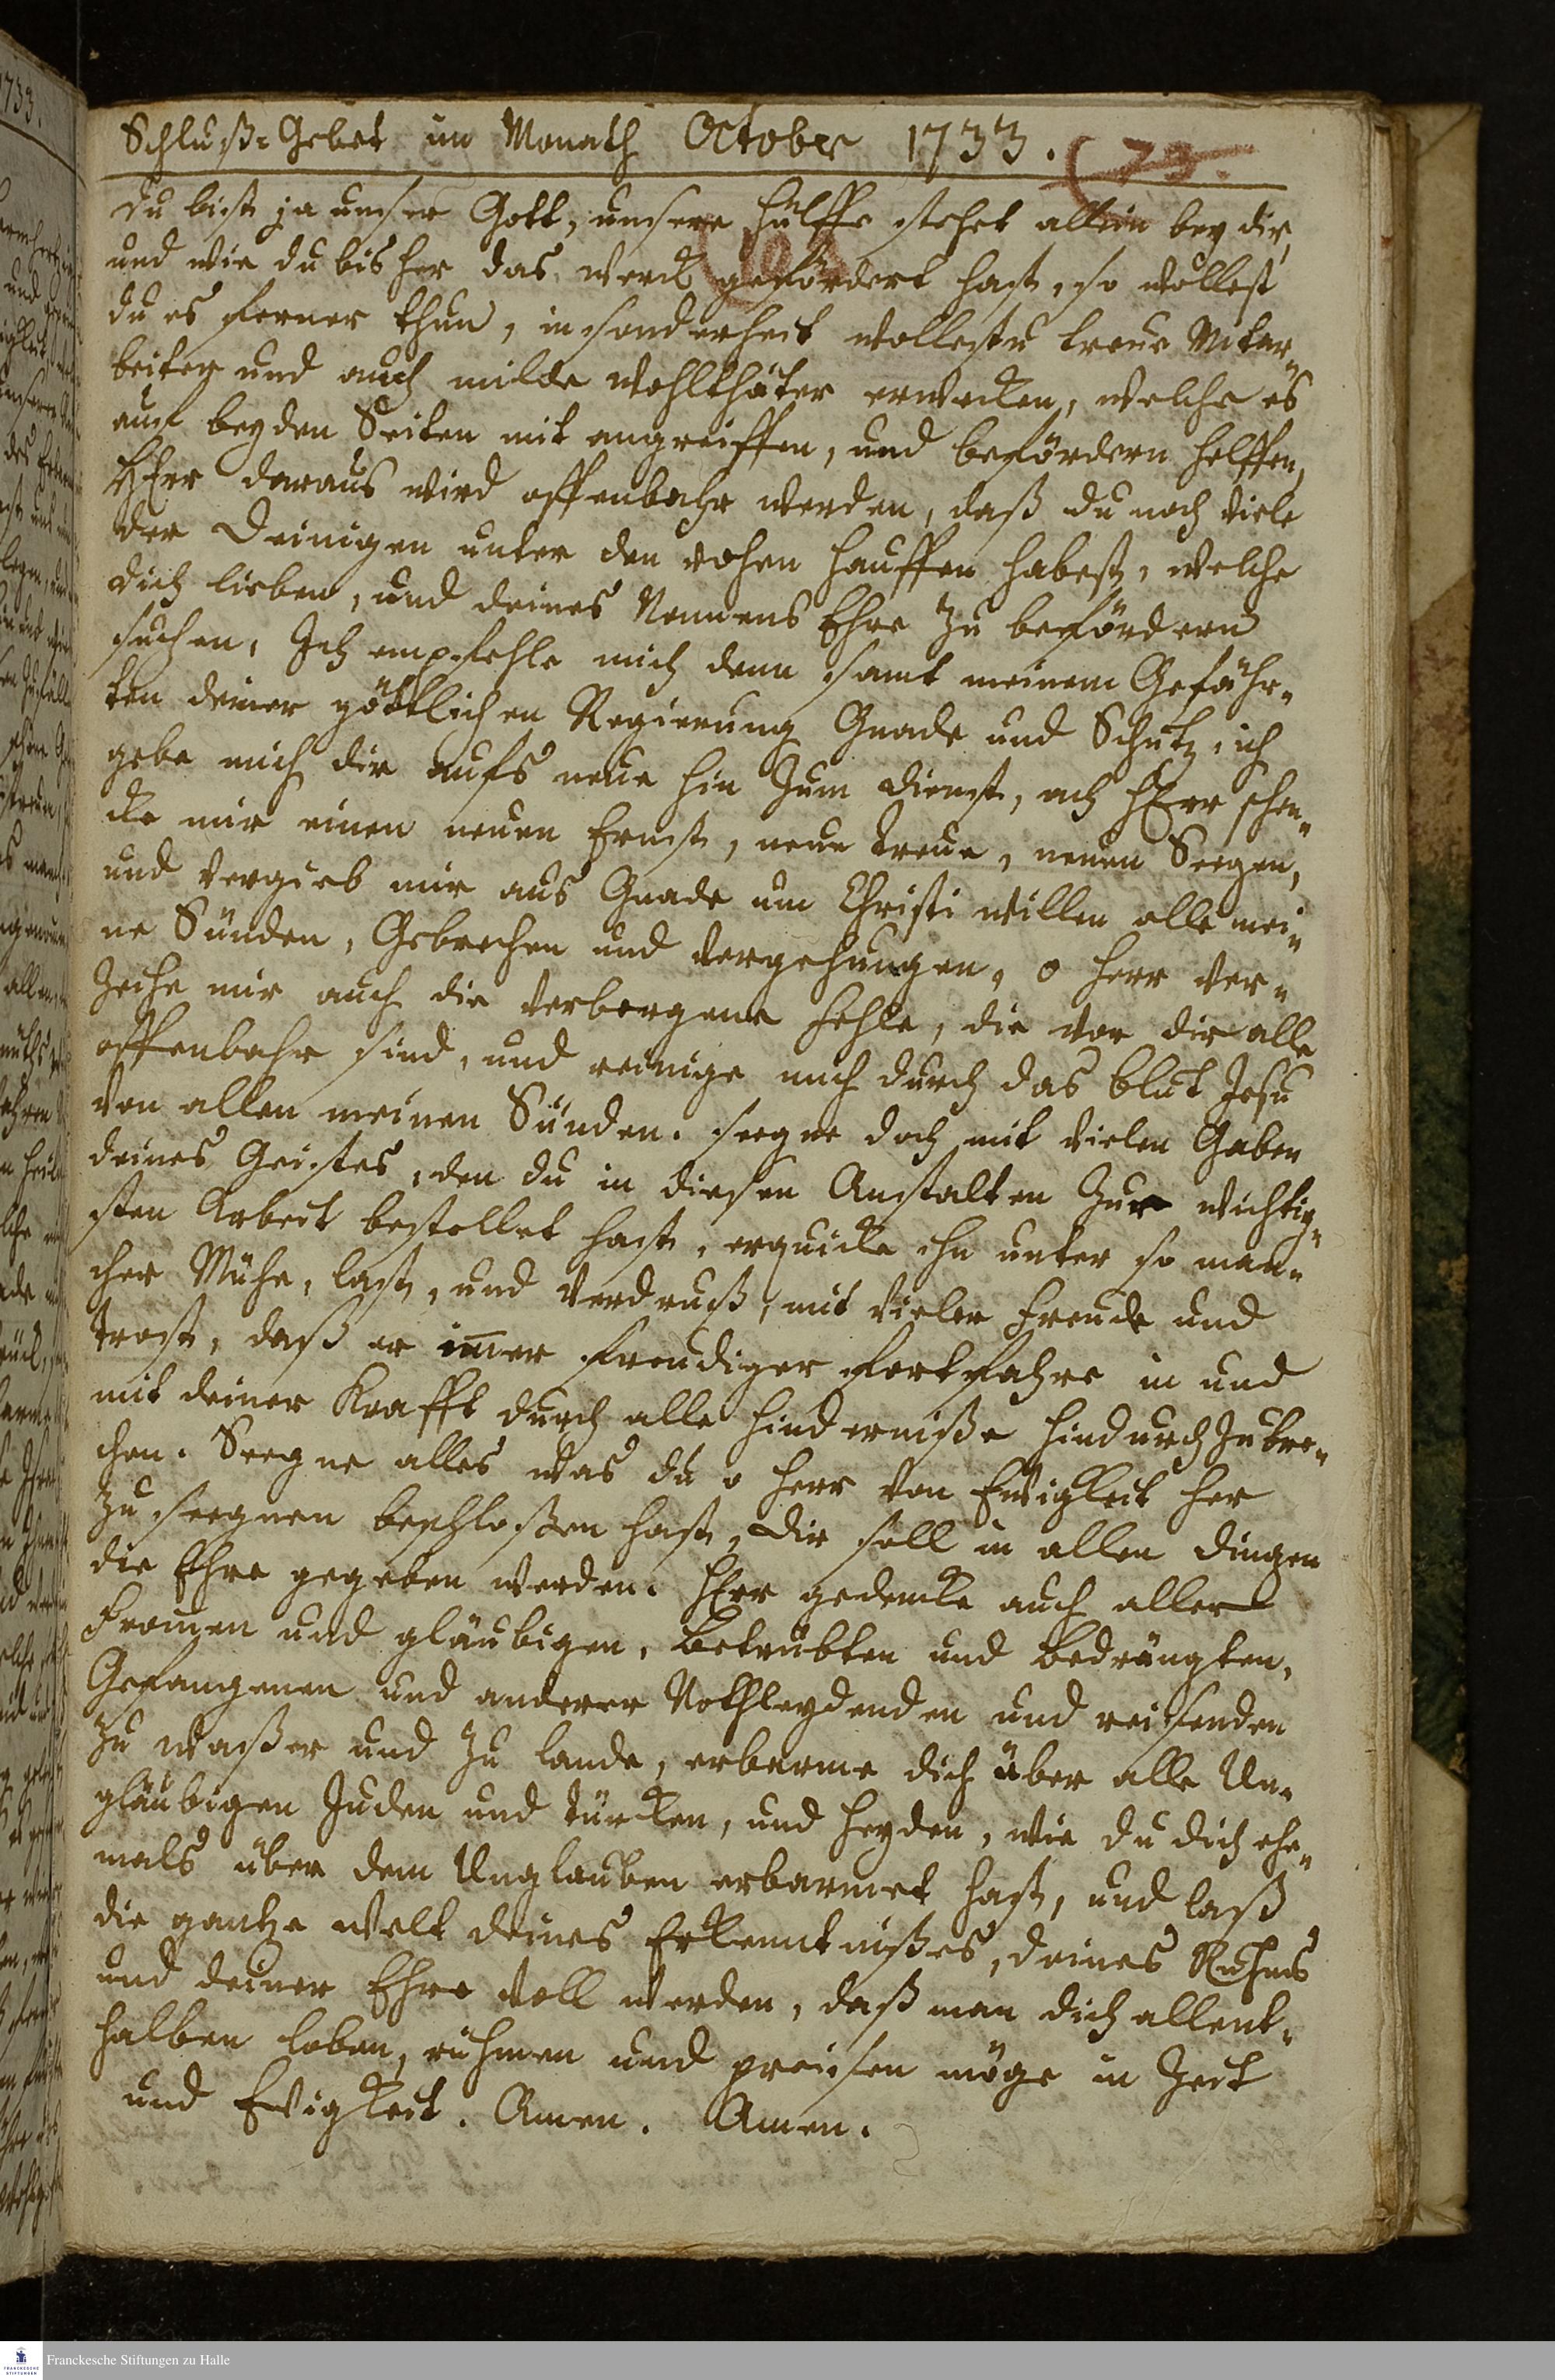 Schluß-Gebet im Monath October 1733. (73.
du bist ja unser Gott, unsere Hülffe stehet allein bey dir,
und wie du bisher das werck gefördert hast, so wollest
du es ferner thun, in sonderheit wollestu treue Mitar-
beiter und auch milde wohlthäter erwecken, welche es
auf beyden Seiten mit angreiffen, und befördern helffen,
HErr daraus wird offenbahr werden, daß du noch viele
der Deinigen unter den rohen Hauffen habest, welche
dich lieben, und deines Namens Ehre zu befördern
suchen, Ich empfehle mich denn samt meinem Gefähr-
ten deiner göttlichen Regierung Gnade und Schutz, ich
gebe mich dir aufs neue hin zum dienst, ach HErr schen-
cke mir einen neuen Ernst, neue treue, neuen Seegen,
und vergieb mir aus Gnade um Christi willen alle mei-
ne Sünden, Gebrechen und vergehungen, o Herr ver-
zeihe mir auch die verborgene fehle, die vor dir alle
offenbahr sind, und reinige mich durch das blut Jesu
von allen meinen Sünden. seegne doch mit vielen Gaben
deines Geistes, den du in diesen Anstalten zur wichtig-
sten Arbeit bestellet hast, erquicke ihn unter so man-
cher Mühe, last, und verdruß, mit vieler Freude und
trost, daß er im̅er freudiger fortfahre in und
mit deiner Krafft durch alle hinderniße hindurch zubre-
chen. Seegne alles was du o Herr von Ewigkeit her
zu seegnen beschloßen hast, dir soll in allen dingen
die Ehre gegeben werden. HErr gedencke auch aller
From̅en und gläubigen, betrübten und bedrängten,
Gefangenen und anderer Nothleydenden und reisenden
zu waßer und zu lande, erbarme dich über alle Un-
gläubigen Juden und türcken, und Heyden, wie du dich ehe-
mals über dem Unglauben erbarmet hast, und laß
die gantze welt deines Erkenntnißes, deines Ruhms
und deiner Ehre voll werden, daß man dich allent-
halben loben, rühmen und preisen möge in Zeit
und Ewigkeit. Amen. Amen.
Franckesche Stiftungen zu Halle